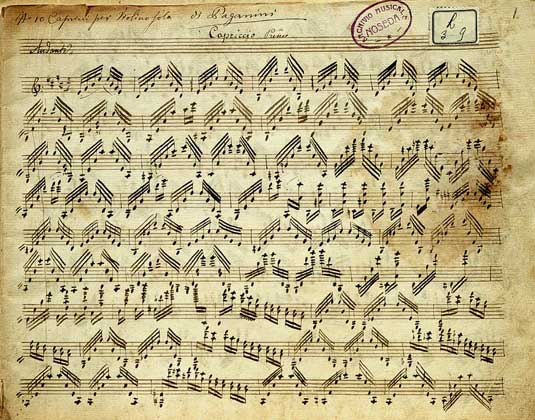 Nº 10 Capricci per Violino solo di Paganini
Capriccio Primo
Andante
ARCHIVIO MUSICALE
NOSEDA
1.
h
3 9